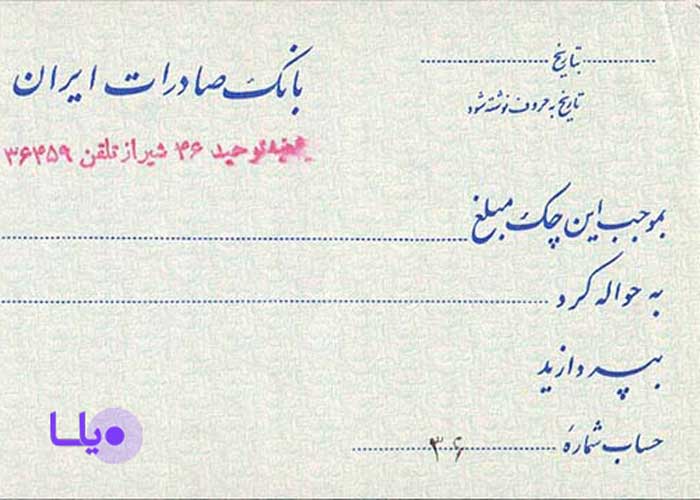 بتاریخ
تاریخ به حروف نوشته شود
بانک صادرات ایران
توحید ۴۶ شیراز تلفن ۳۶۴۵۹
بموجب این چک مبلغ
به حواله کرد
بپردازید
حساب شمارهٔ ۳۰۶
ویلسا